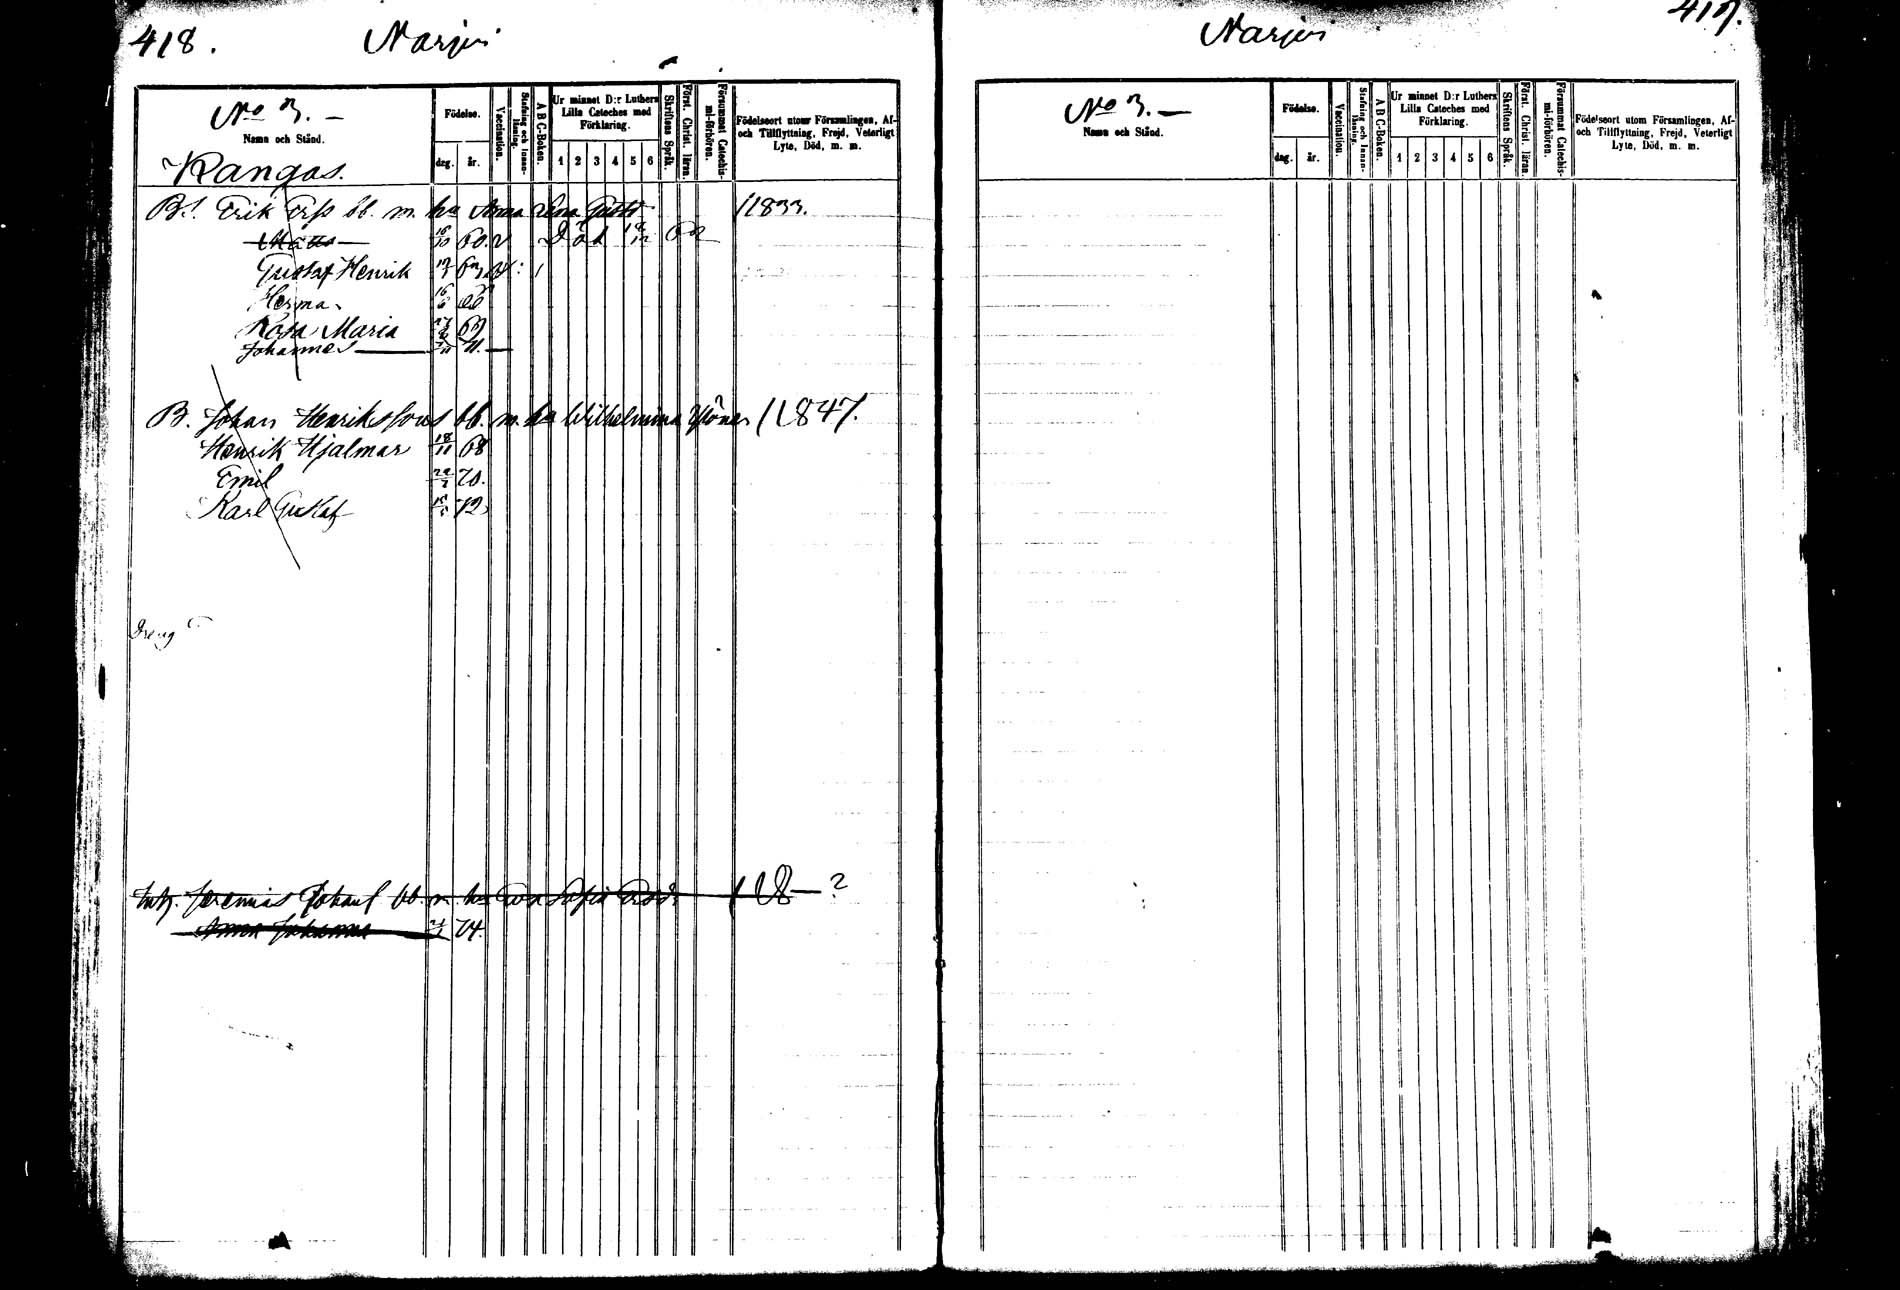 418.
Narjis
No 3.
Namn och Stånd.
Födelse.
dag.
år.
Vaccination.
Stafning och Innan-läsning.
A B C-Boken.
Ur minnet D:r Luthers Lilla Cateches med Förklaring.
1 2 3 4 5 6
Skriftens Språk.
Först. Christ. läran.
Försummat Catechis-mi-förhören.
Födelseort utom Församlingen, Af- och Tillflyttning, Frejd, Veterligt Lyte, Död, m. m.
Kangas.
B. Erik Ers bb. m. ha Anna Lena 1833.
Matts 16/10 60. v Död
Gustaf Henrik 63
Herman 16/6
Rosa Maria
Johannes 71.
B. Johan Henrikssons bb. m. ha Wilhelmina 1847.
Henrik Hjalmar 18/11 68
Emil 70.
Karl Gustaf 72
Dreng
Jeremias Johans bb. m. ha Eva Sofia 118 — ?
Anna Johanna 74.
419.
Narjis
No 3.
Namn och Stånd.
Födelse.
dag.
år.
Vaccination.
Stafning och Innan-läsning.
A B C-Boken.
Ur minnet D:r Luthers Lilla Cateches med Förklaring.
1 2 3 4 5 6
Skriftens Språk.
Först. Christ. läran.
Försummat Catechis-mi-förhören.
Födelseort utom Församlingen, Af- och Tillflyttning, Frejd, Veterligt Lyte, Död, m. m.